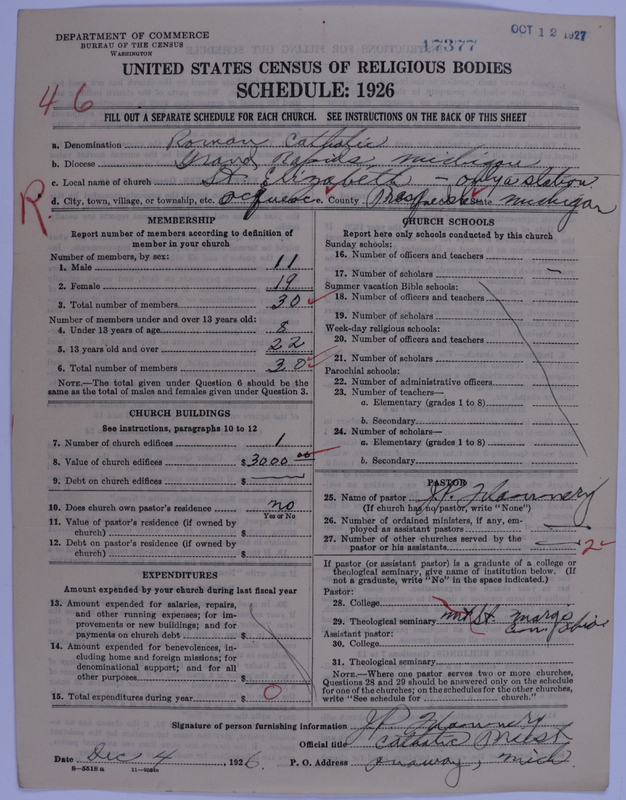 DEPARTMENT OF COMMERCE
BUREAU OF THE CENSUS
WASHINGTON
17377
OCT 12 1927
UNITED STATES CENSUS OF RELIGIOUS BODIES
SCHEDULE: 1926
46
FILL OUT A SEPARATE SCHEDULE FOR EACH CHURCH. SEE INSTRUCTIONS ON THE BACK OF THIS SHEET
a. Denomination Roman Catholic
b. Diocese Grand Rapids, Michigan
c. Local name of church St. Elizabeth – only a station
R
d. City, town, village, or township, etc. Ocqueoc. County Presque Isle State Michigan
MEMBERSHIP
Report number of members according to definition of
member in your church
Number of members, by sex:
1. Male 11
2. Female 19
3. Total number of members 30
Number of members under and over 13 years old:
4. Under 13 years of age 8
5. 13 years old and over 22
6. Total number of members 30
NOTE.—The total given under Question 6 should be the
same as the total of males and females given under Question 3.
CHURCH BUILDINGS
See instructions, paragraphs 10 to 12
7. Number of church edifices 1
8. Value of church edifices $3000 00
9. Debt on church edifices $
10. Does church own pastor's residence no
Yes or No
11. Value of pastor's residence (if owned by
church) $
12. Debt on pastor's residence (if owned by
church) $
EXPENDITURES
Amount expended by your church during last fiscal year
13. Amount expended for salaries, repairs,
and other running expenses; for im-
provements or new buildings; and for
payments on church debt $
14. Amount expended for benevolences, in-
cluding home and foreign missions; for
denominational support; and for all
other purposes $
15. Total expenditures during year $ 0
CHURCH SCHOOLS
Report here only schools conducted by this church
Sunday schools:
16. Number of officers and teachers
17. Number of scholars –
Summer vacation Bible schools:
18. Number of officers and teachers
19. Number of scholars
Week-day religious schools:
20. Number of officers and teachers
21. Number of scholars
Parochial schools:
22. Number of administrative officers
23. Number of teachers—
a. Elementary (grades 1 to 8)
b. Secondary
24. Number of scholars—
a. Elementary (grades 1 to 8)
b. Secondary
PASTOR
25. Name of pastor J.P. Flannery
(If church has no pastor, write "None")
26. Number of ordained ministers, if any, em-
ployed as assistant pastors
27. Number of other churches served by the
pastor or his assistants 2
If pastor (or assistant pastor) is a graduate of a college or
theological seminary, give name of institution below. (If
not a graduate, write "No" in the space indicated.)
Pastor:
28. College
29. Theological seminary Mt St. Marys
Assistant pastor:
30. College
31. Theological seminary
NOTE.—Where one pastor serves two or more churches,
Questions 28 and 29 should be answered only on the schedule
for one of the churches; on the schedules for the other churches,
write "See schedule for church."
Signature of person furnishing information J.P. Flannery
Official title Catholic Priest
Date Dec 4, 1926. P. O. Address Onaway, Mich
8—5518a 11—9088